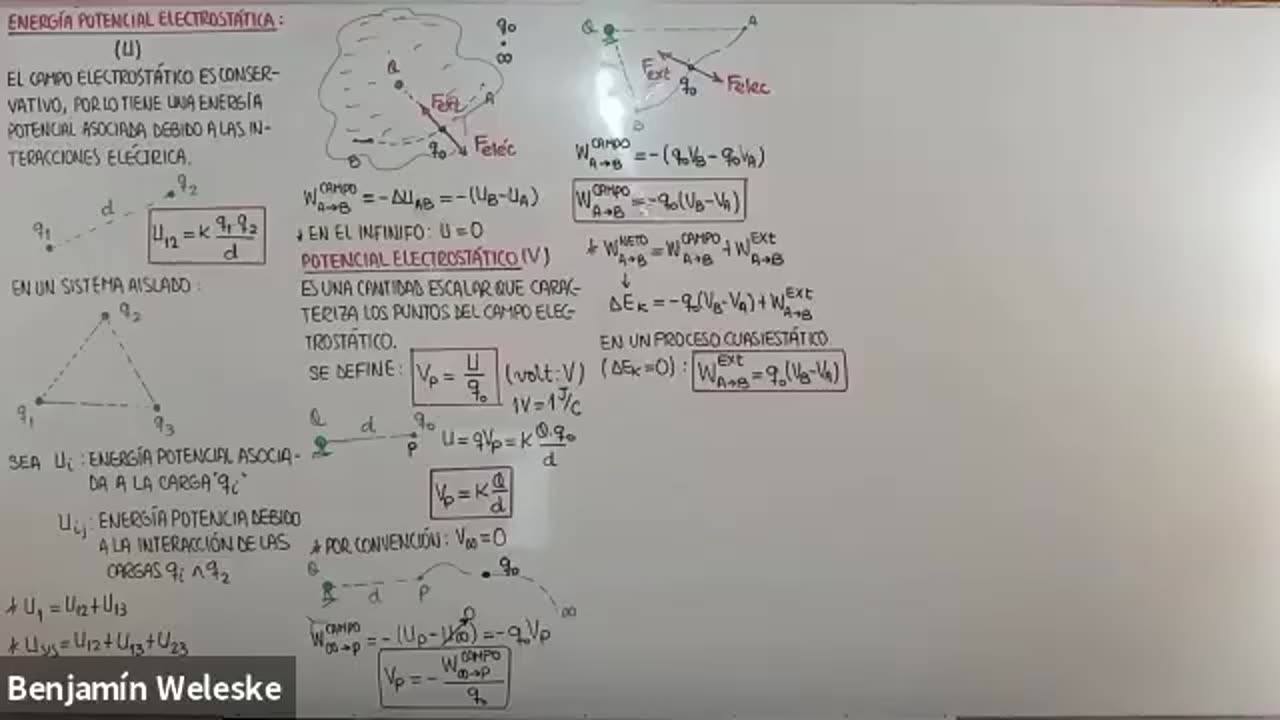 ENERGÍA POTENCIAL ELECTROSTÁTICA:
(U)
EL CAMPO ELECTROSTÁTICO ES CONSER-
VATIVO, POR LO TIENE UNA ENERGÍA
POTENCIAL ASOCIADA DEBIDO A LAS IN-
TERACCIONES ELÉCTRICA.
q₁ d q₂
U₁₂ = K q₁ q₂ / d
EN UN SISTEMA AISLADO:
q₂
q₁ q₃
SEA Uᵢ: ENERGÍA POTENCIAL ASOCIA-
DA A LA CARGA "qᵢ"
Uᵢⱼ: ENERGÍA POTENCIA DEBIDO
A LA INTERACCIÓN DE LAS
CARGAS qᵢ ∧ q₂
* U₁ = U₁₂ + U₁₃
* U_sys = U₁₂ + U₁₃ + U₂₃
Benjamín Weleske
q₀
∞
Q
Fext
A
B q₀ Feléc
W^CAMPO_A→B = -ΔU_AB = -(U_B - U_A)
* EN EL INFINIFO: U = 0
POTENCIAL ELECTROSTÁTICO (V)
ES UNA CANTIDAD ESCALAR QUE CARAC-
TERIZA LOS PUNTOS DEL CAMPO ELEC-
TROSTÁTICO.
SE DEFINE: V_P = U / q₀ (volt: V)
1V = 1 J/C
Q d q₀
P
U = qV_P = K Q.q₀ / d
V_P = K Q / d
* POR CONVENCIÓN: V∞ = 0
Q d P q₀ ∞
W^CAMPO_∞→P = -(U_P - U∞) = -q₀V_P
0
V_P = - W^CAMPO_∞→P / q₀
Q A
Fext
q₀ Felec
B
W^CAMPO_A→B = -(q₀V_B - q₀V_A)
W^CAMPO_A→B = -q₀(V_B - V_A)
* W^NETO_A→B = W^CAMPO_A→B + W^Ext_A→B
↓
ΔE_K = -q₀(V_B - V_A) + W^Ext_A→B
EN UN PROCESO CUASIESTÁTICO
(ΔE_K = 0): W^Ext_A→B = q₀(V_B - V_A)